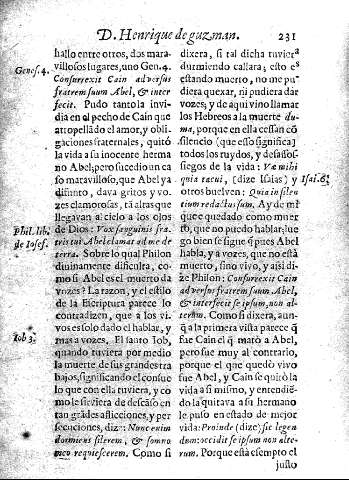 D. Henrique de guzman. 231
hallo entre otros, dos mara-
villosos lugares, uno Gen. 4.
Genes. 4.
Consurrexit Cain adversus
fratrem suum Abel, & inter
fecit. Pudo tanto la invi-
dia en el pecho de Cain que
atropellādo el amor, y obli-
gaciones fraternales, quitò
la vida a su inocente herma
no Abel; pero sucedio un ca
so maravilloso, que Abel ya
difunto, dava gritos y vo-
zes clamorosas, tā altas que
llegavan al cielo a los ojos
de Dios: Vox sanguinis fra
Phil. lib.
tris tui Abel clamat ad me de
de Iosef.
terra. Sobre lo qual Philon
divinamente dificulta, co-
mo si Abel es el muerto da
vozes? La razon, y el estilo
de la Escriptura parece lo
contradizen, que a los vi-
vos es solo dado el hablar, y
mas a vozes. El santo Iob,
Iob 3.
quando tuviera por medio
la muerte de sus grandes tra
bajos, significando el consue
lo que con ella tuviera, y co
mo le sirviera de descāso en
tan grādes aflicciones, y per
secuciones, diz: Nunc enim
dormiens silerem, & somno
meo requiescerem. Como si
dixera, si tal dicha tuviera
durmiendo callara; esto es
estando muerto, no me pu-
diera quexar, ni pudiera dar
vozes; y de aqui vino llamar
los Hebreos a la muerte du-
ma, porque en ella cessan cō
silencio (que esso significa)
todos los ruydos, y desasos-
siegos de la vida: Væ mihi
quia tacui, (dize Isaias) y
Isai. 6.
otros buelven: Quia in silen
tium redactus sum. Ay de mi
que quedado como muer-
to, que no puedo hablar; lue
go bien se sigue q̃ pues Abel
habla, y a vozes, que no està
muerto, sino vivo, y assi di-
ze Philon: Consurrexit Cain
adversus fratrem suum Abel,
& interfecit se ipsum, non al-
terum. Como si dixera, aun-
q̃ a la primera vista parece q̃
fue Cain el q̃ matò a Abel,
pero fue muy al contrario,
porque el que quedò vivo
fue Abel, y Cain se quitò la
vida a si mismo, y entendiē-
do la quitava a su hermano
le puso en estado de mejor
vida: Proinde (dize) sic legen
dum: occidit se ipsum non alte-
rum. Porque està esempto el
justo